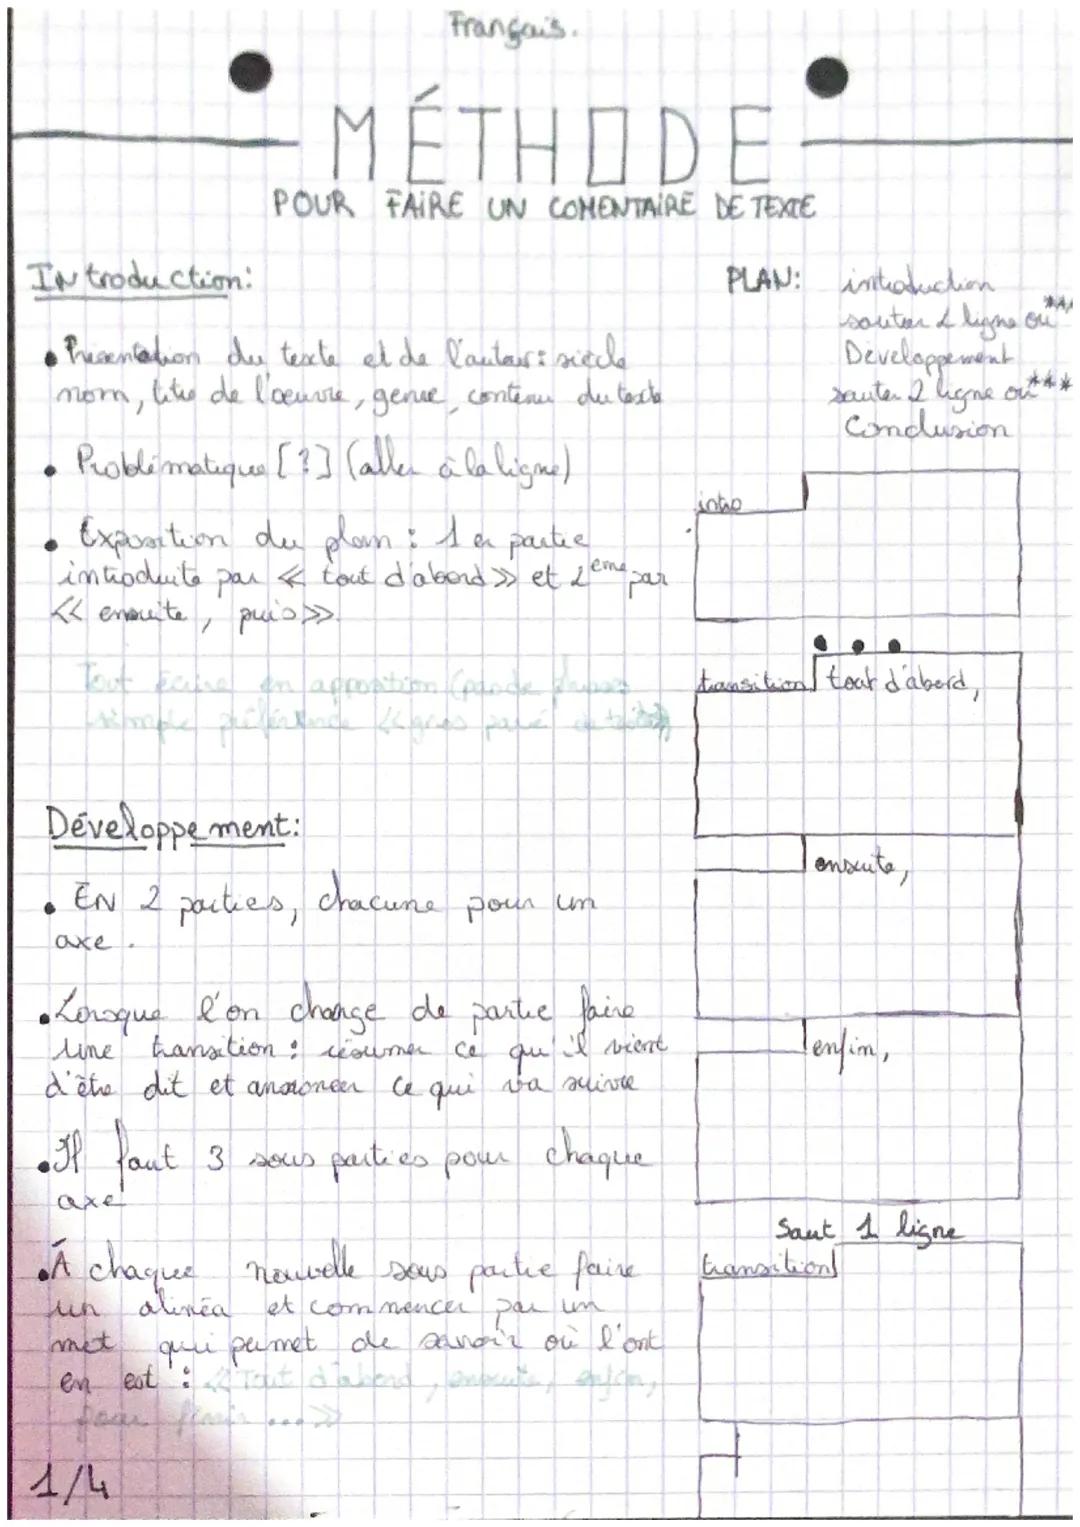 Français.
MÉTHODE
POUR FAIRE UN COMENTAIRE DE TEXTE
Introduction:
• Présentation du texte et de l'auteur : siècle
nom, titre de l'œuvre, genre, contenu du texte
• Problématique [?] (aller à la ligne)
• Exposition du plan : 1er partie
introduite par « tout d'abord » et 2ème par
« ensuite, puis ».
Tout écrire en apposition (pas de phrases
simple préférence
Développement:
• EN 2 parties, chacune pour un
axe.
• Lorsque l'on change de partie faire
une transition : résumer ce qu'il vient
d'être dit et annoncer ce qui va suivre
• Il faut 3 sous parties pour chaque
axe
• À chaque nouvelle sous partie faire
un alinéa et commencer par un
mot qui permet de savoir où l'ont
en est : « Tout d'abord, ensuite, enfin,
pour finir ... »
1/4
PLAN: introduction
sauter 2 ligne ou ***
Développement
sauter 2 ligne ou ***
Conclusion
intro
transition tout d'abord,
ensuite,
enfin,
Saut 1 ligne
transition